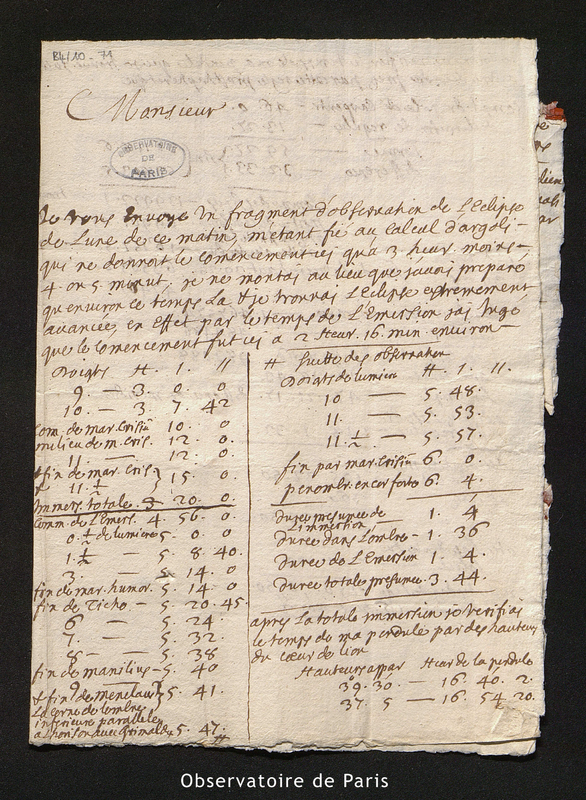 B4/10 - 71
Monsieur
OBSERVATOIRE
DE
PARIS
Je vous envoye un fragment d'observation de l'Eclipse
de Lune de ce matin, m'étant fié au calcul d'argoli -
qui ne donnoit le comencement ici qu'a 3 heur. moins -
4 on 5 minut, je ne montai au lieu que j'avois preparé
qu'environ ce temps la & je trouvai l'Eclipse extremement
avancée, en effet par le temps de l'Emersion j'ai Jugé
que le comencement fut ici a 2 Heur. 16. min environ -
Doigts H. 1. 11
9. — 3. 0. 0
10. — 3. 7. 42
Com. de mar. Crisiū 10. 0
milieu de m. Cris. 12. 0.
11 — 12. 0.
& fin de mar. Cris.
& 11. 1/2 } 15. 0
Immers. totale. 3 - 20. 0.
Comm. de l'Emers. 4. 56. 0
0. 1/2 de lumiere 5. 0. 0
1. 1/2 — 5. 8. 40.
3. — 5. 14. 0
fin de mar. humor. 5. 14. 0
fin de Ticho — 5. 20. 45.
6 — 5. 24
7. — 5. 32.
8 — 5. 38
fin de manilius - 5. 40
9
& fin de Menelaus } 5. 41.
La corne de l'ombre
inferieure parallele
a l'horison avec Grimaldi 5. 47.
H
H Suitte des observation
Doigts de lumiere H. 1. 11.
10 — 5. 48.
11. — 5. 53.
11. 1/2 — 5. 57.
fin par mar. Crisiū 6. 0
penombr. encor forte 6. 4.
Duree presumee de
L'immersion 1. 4
Duree dans l'ombre - 1. 36
Duree de l'Emersion 1. 4.
Duree totale presumee. 3. 44.
apres la totale immersion je verifiai
le temps de ma pendule par des hauteurs
du coeur de lion
Hauteurs appar Heur de la pendule
39. 30. — 16. 40. 2.
37. 5 — 16. 54. 20.
Observatoire de Paris